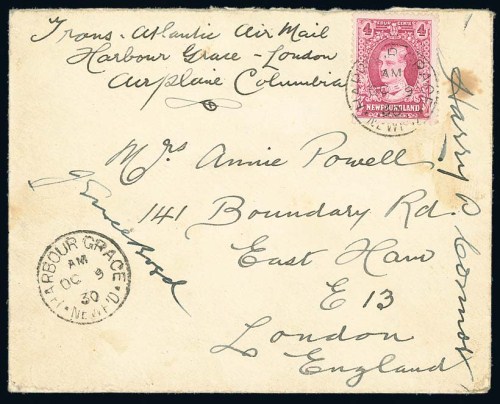 Trans-Atlantic Air Mail
Harbour Grace - London
Airplane Columbia
4 4
NEWFOUNDLAND
GRACE
AM
9
NEWF'D
Mrs Annie Powell,
141 Boundary Rd.
East Ham
E 13
London
England
Errol Boyd
Harry P Connor
HARBOUR GRACE
AM
OC 9
30
NEWF'D